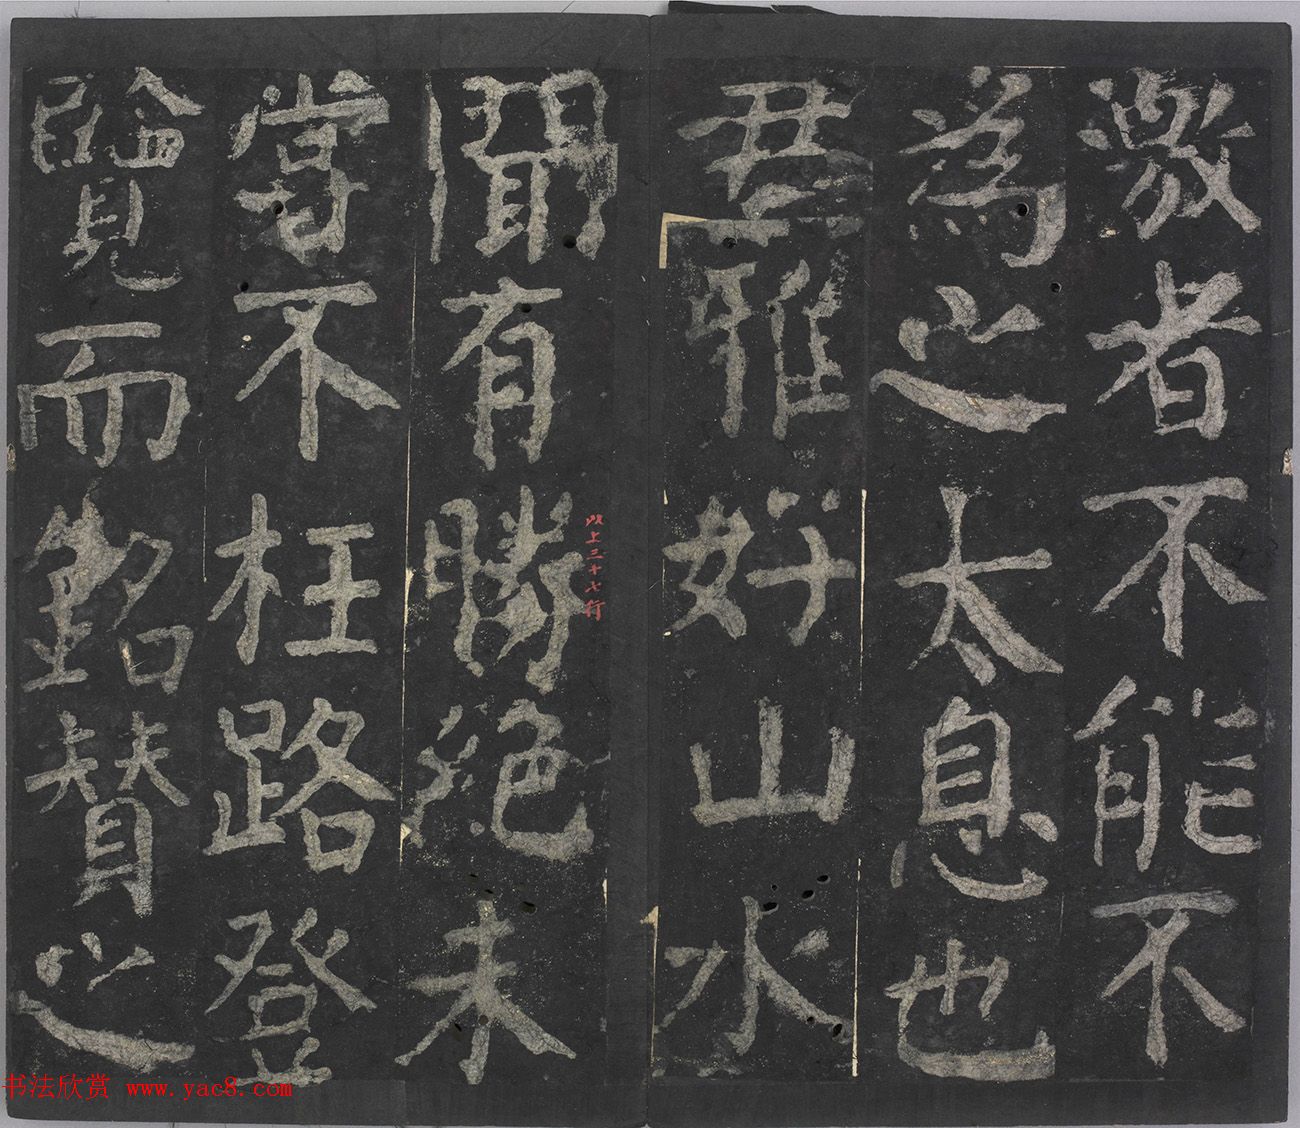 激者不能不
為之太息也
君雅好山水
聞有勝絕未
嘗不枉路登
覽而銘贊之
以上三十七行
书法欣赏 www.yac8.com